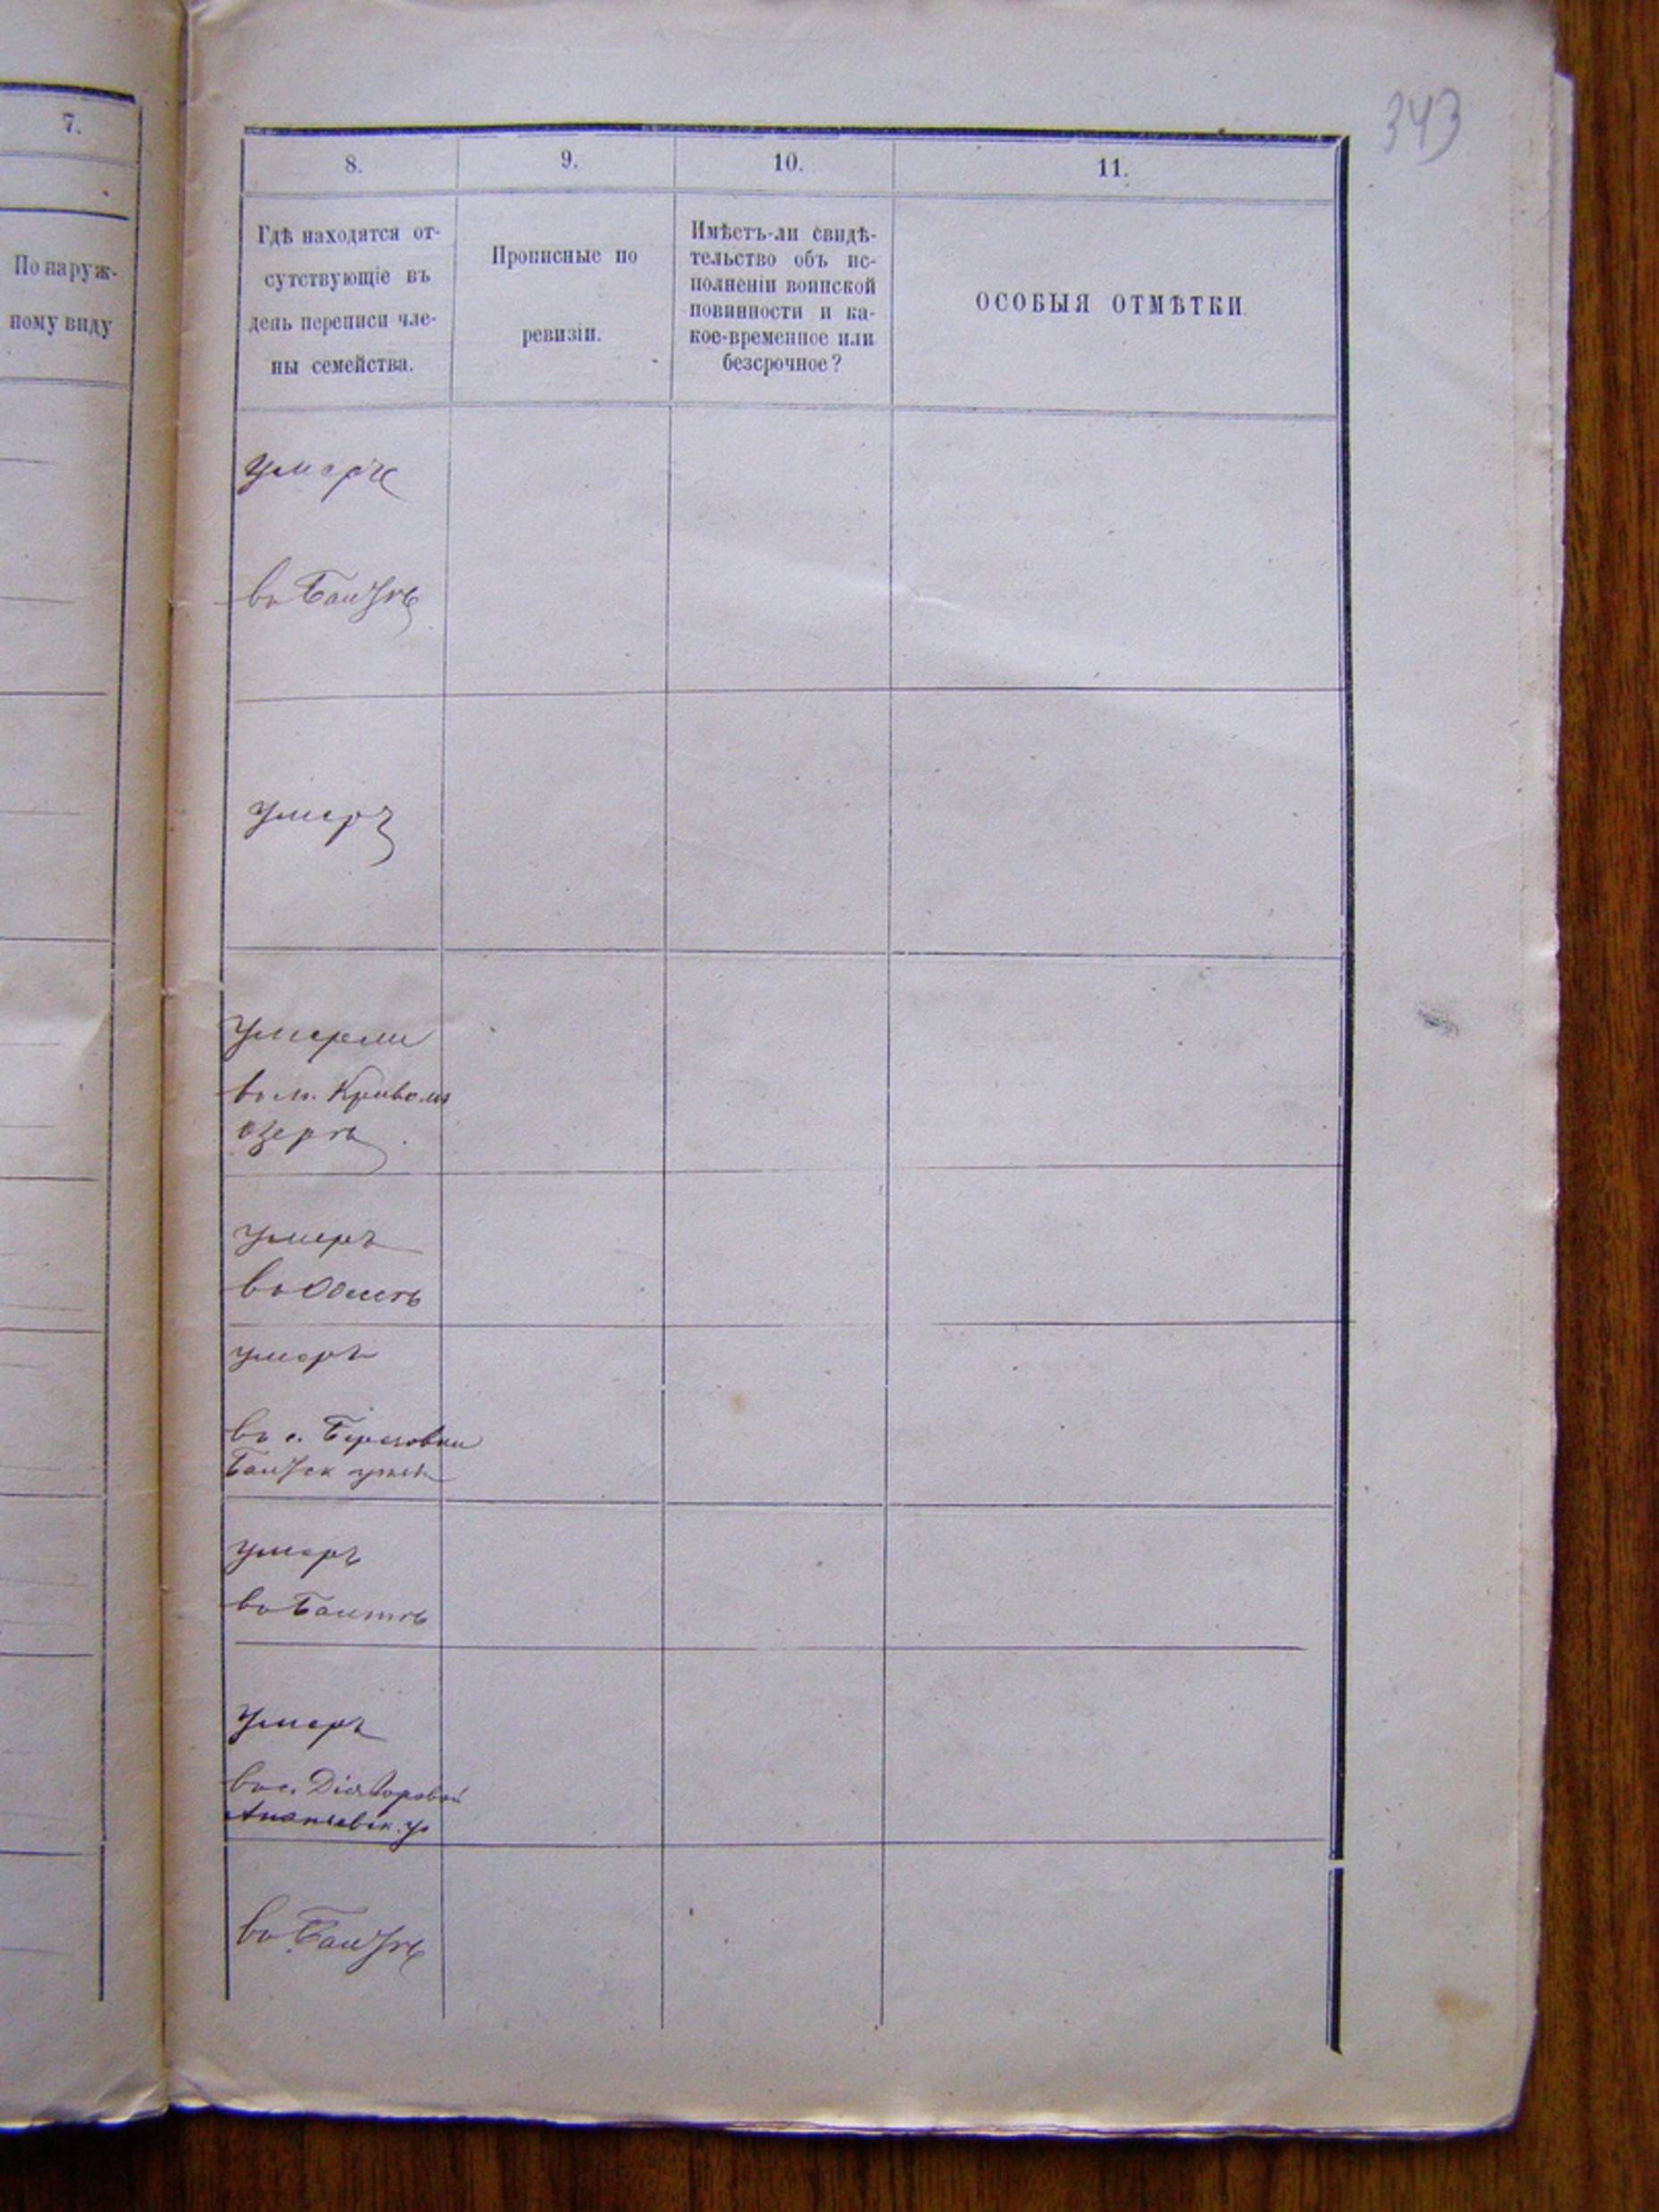 343
7.
По наруж-
ному виду
8.
9.
10.
11.
Гдѣ находятся от-
сутствующіе въ
день переписи чле-
ны семейства.
Прописные по
ревизіи.
Имѣетъ-ли свидѣ-
тельство объ ис-
полненіи воинской
повинности и ка-
кое-временное или
безсрочное?
ОСОБЫЯ ОТМѢТКИ.
Умеръ
въ Балтѣ
Умеръ
Умерли
въ м. Кривомъ
Озерѣ
Умеръ
въ Одессѣ
умеръ
въ с. Березовки
Балтск уѣзда
умеръ
въ Балтѣ
Умеръ
въ с.
Ананьевск. у.
въ Балтѣ